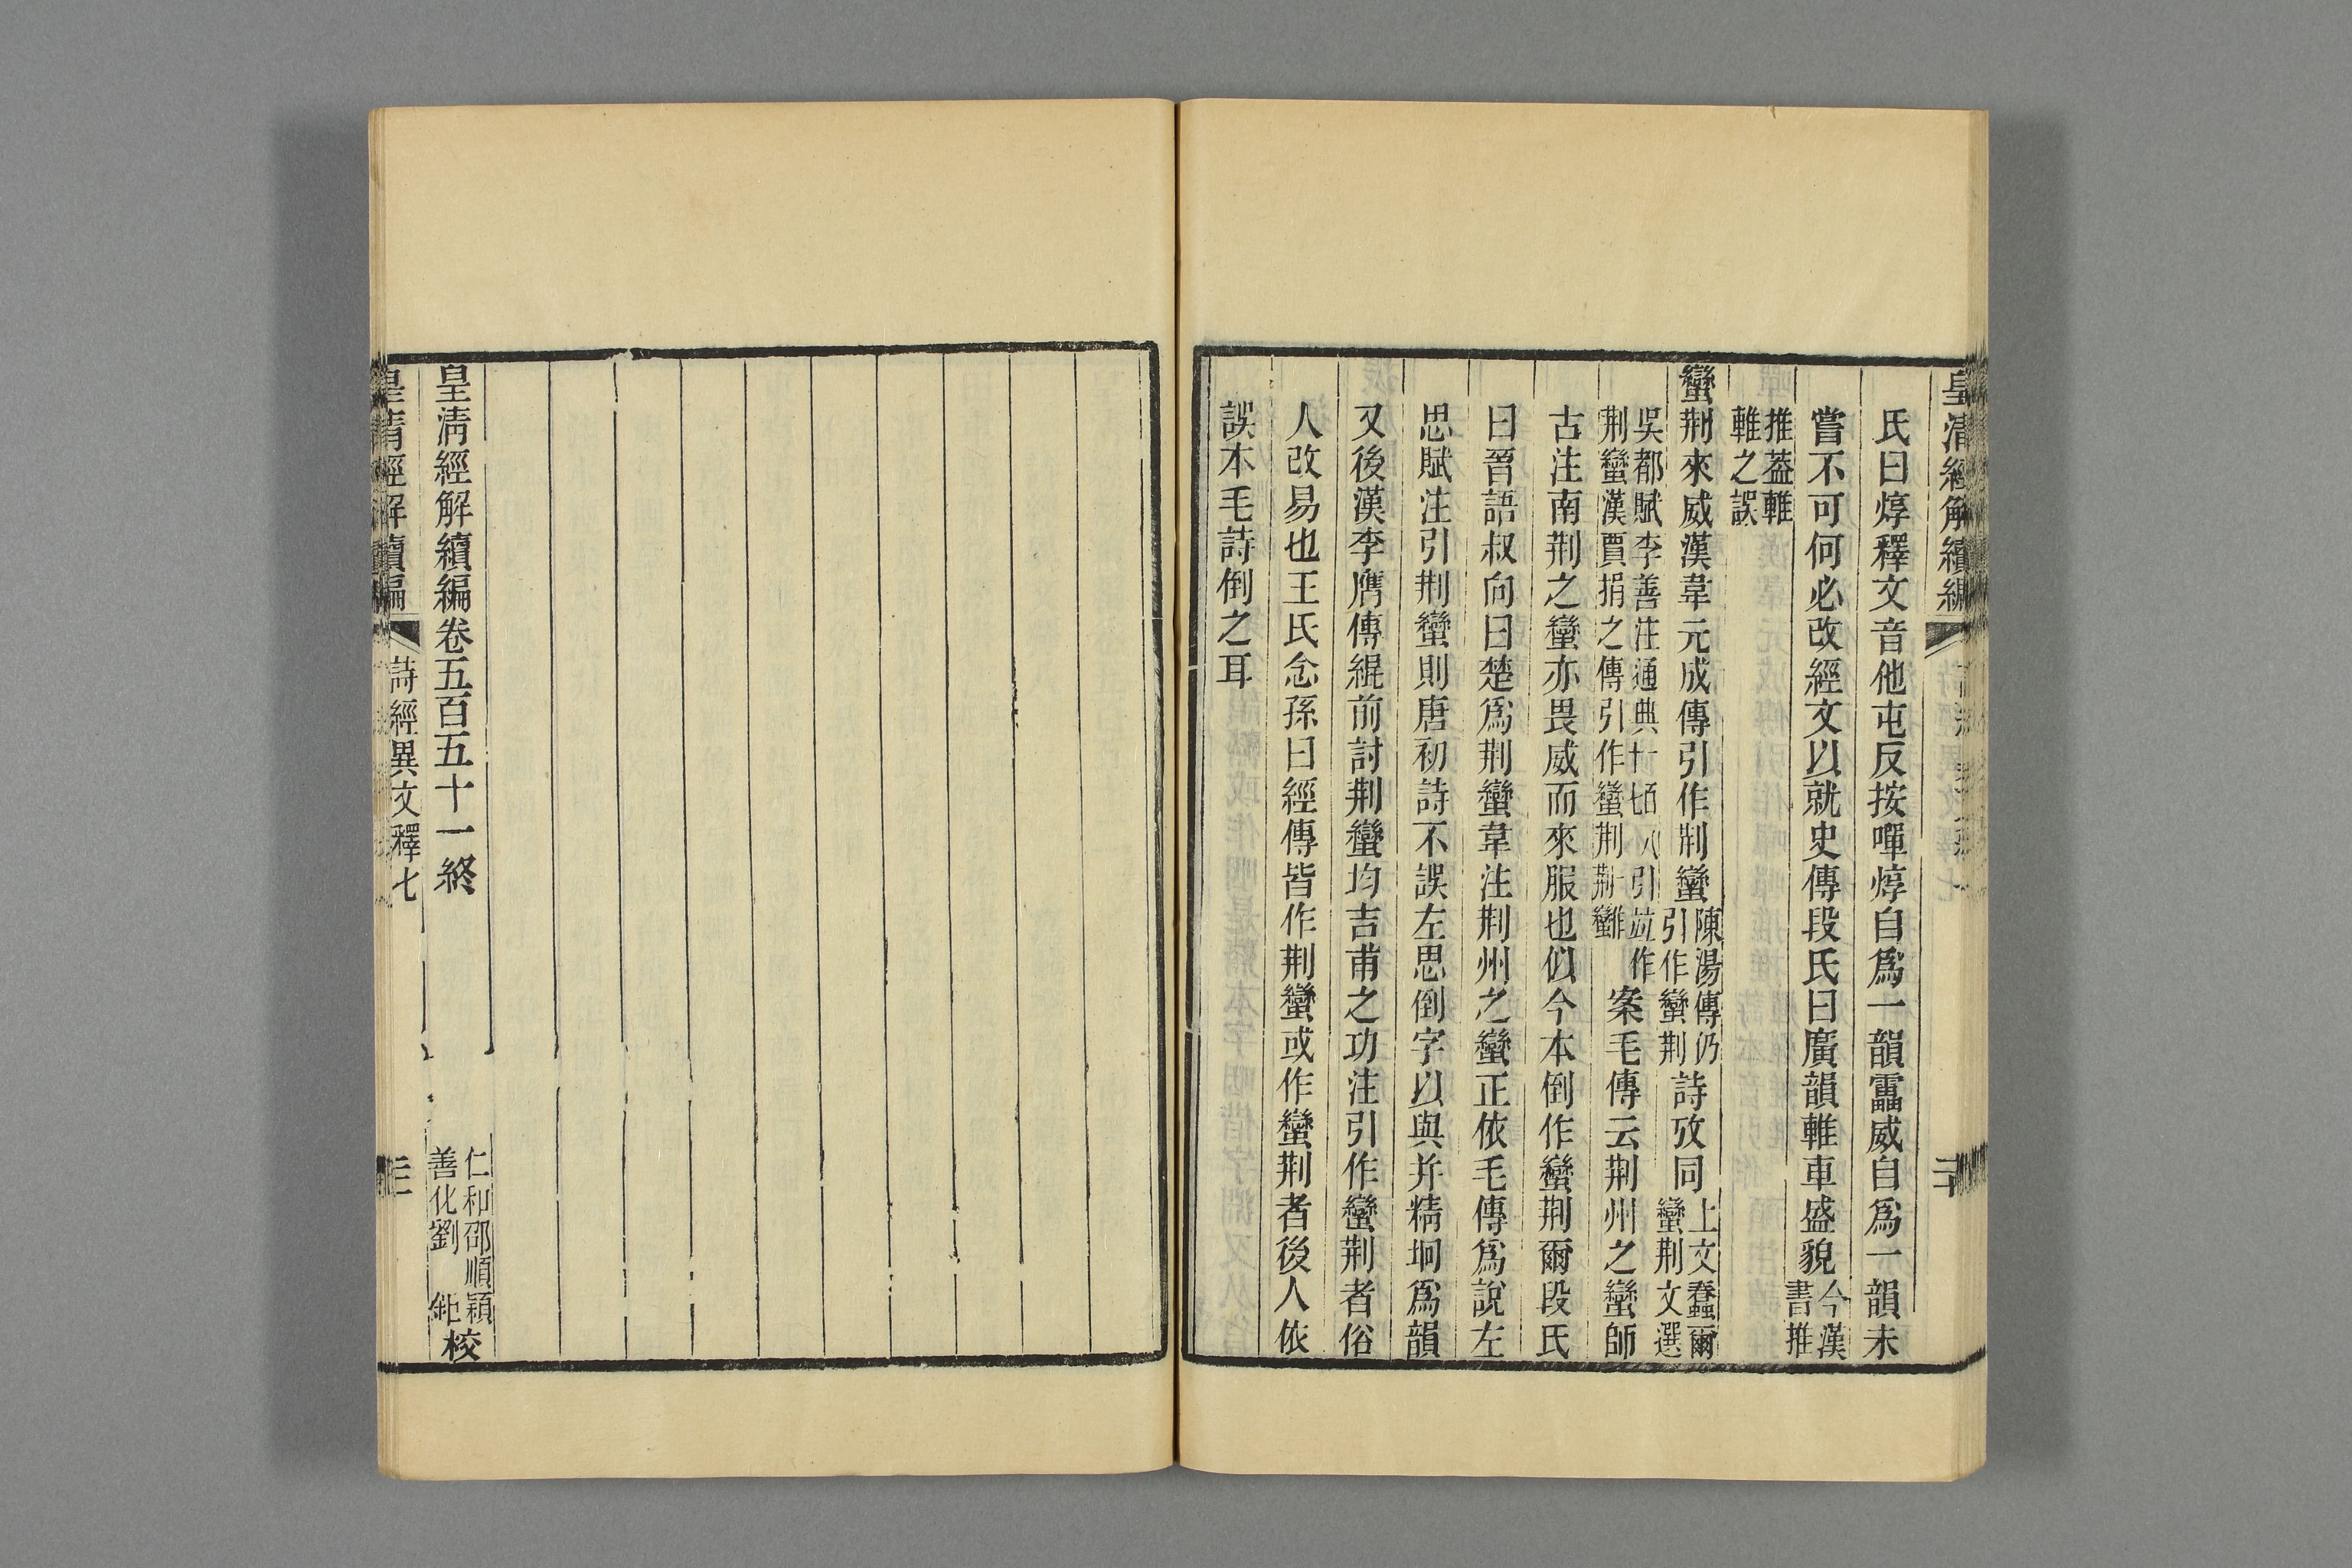 皇清經解續編
二十
氏曰焞釋文音他屯反按嘽焞自爲一韻靁威自爲一韻未
嘗不可何必改經文以就史傳段氏曰廣韻䡔車盛貌今漢書推
推葢䡔䡔之誤
蠻荆來威漢韋元成傳引作荆蠻陳湯傳仍引作蠻荆詩攷同上文蠢爾蠻荆文選
吳都賦李善注通典百八十七引竝作荆蠻漢賈捐之傳引作蠻荆荆一作蠻案毛傳云荆州之蠻師
古注南荆之蠻亦畏威而來服也似今本倒作蠻荆爾段氏
曰晉語叔向曰楚爲荆蠻韋注荆州之蠻正依毛傳爲說左
思賦注引荆蠻則唐初詩不誤左思倒字以與并精坰爲韻
又後漢李膺傳緄前討荆蠻均吉甫之功注引作蠻荆者俗
人改易也王氏念孫曰經傳皆作荆蠻或作蠻荆者後人依
誤本毛詩倒之耳
皇淸經解續編卷五百五十一終
仁和邵順穎
善化劉 鉅校
皇清經解續編
詩經異文釋七